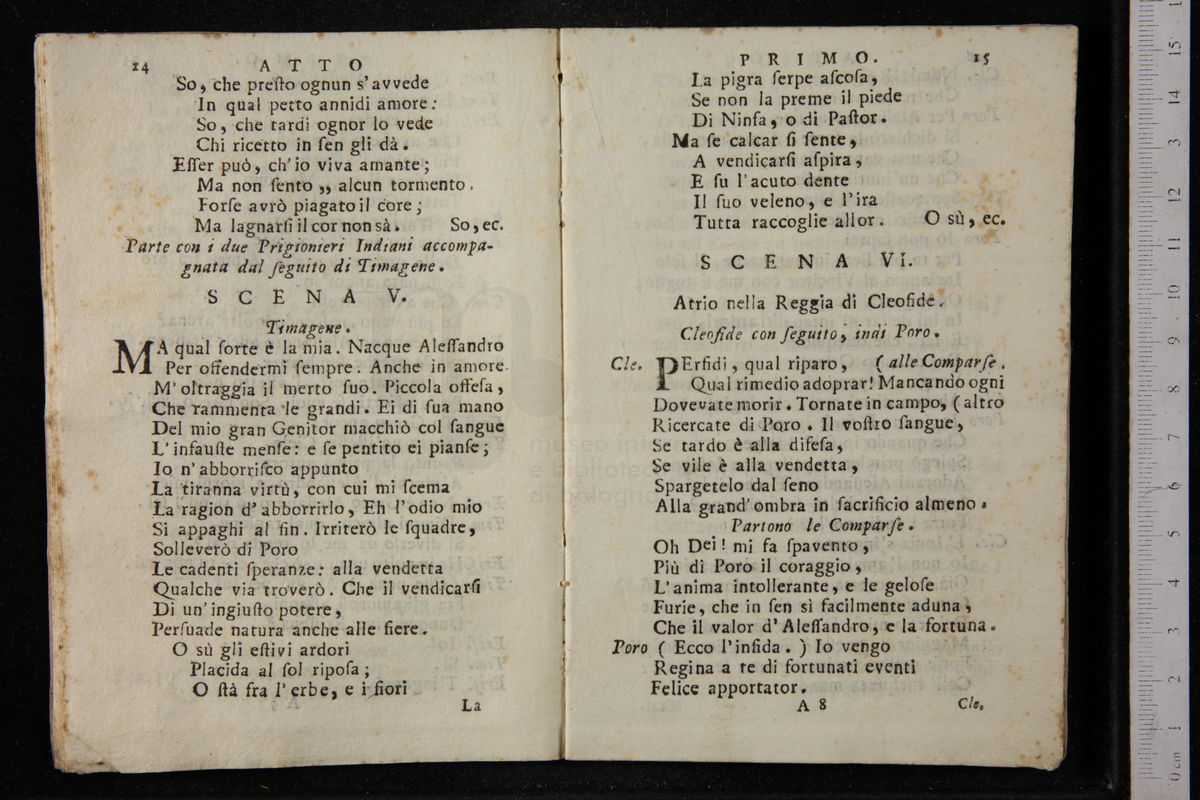 14 ATTO
So, che preſto ognun s'avvede
In qual petto annidi amore:
So, che tardi ognor lo vede
Chi ricetto in ſen gli dà.
Eſſer può, ch'io viva amante;
Ma non ſento „ alcun tormento.
Forſe avrò piagato il core;
Ma lagnarſi il cor non sà. So, ec.
Parte con i due Prigionieri Indiani accompa-
gnata dal ſeguito di Timagene.
SCENA V.
Timagene.
MA qual ſorte è la mia. Nacque Aleſſandro
Per offendermi ſempre. Anche in amore
M'oltraggia il merto ſuo. Piccola offeſa,
Che rammenta le grandi. Ei di ſua mano
Del mio gran Genitor macchiò col ſangue
L'infauſte menſe: e ſe pentito ei pianſe;
Io n'abborriſco appunto
La tiranna virtù, con cui mi ſcema
La ragion d'abborrirlo, Eh l'odio mio
Si appaghi al fin. Irriterò le ſquadre,
Solleverò di Poro
Le cadenti ſperanze: alla vendetta
Qualche via troverò. Che il vendicarſi
Di un'ingiuſto potere,
Perſuade natura anche alle fiere.
O sù gli eſtivi ardori
Placida al ſol ripoſa;
O ſtà fra l'erbe, e i fiori
La
PRIMO. 15
La pigra ſerpe aſcoſa,
Se non la preme il piede
Di Ninfa, o di Paſtor.
Ma ſe calcar ſi ſente,
A vendicarſi aſpira,
E ſu l'acuto dente
Il ſuo veleno, e l'ira
Tutta raccoglie allor. O sù, ec.
SCENA VI.
Atrio nella Reggia di Cleofide.
Cleofide con ſeguito, indi Poro.
Cle. PErfidi, qual riparo, (alle Comparſe.
Qual rimedio adoprar! Mancando ogni
Dovevate morir. Tornate in campo, (altro
Ricercate di Poro. Il voſtro ſangue,
Se tardo è alla difeſa,
Se vile è alla vendetta,
Spargetelo dal ſeno
Alla grand'ombra in ſacrificio almeno.
Partono le Comparſe.
Oh Dei! mi fa ſpavento,
Più di Poro il coraggio,
L'anima intollerante, e le geloſe
Furie, che in ſen sì facilmente aduna,
Che il valor d'Aleſſandro, e la fortuna.
Poro (Ecco l'infida.) Io vengo
Regina a te di fortunati eventi
Felice apportator.
A 8 Cle.